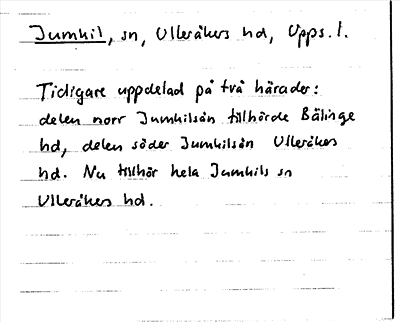 Jumkil, sn, Ulleråkers hd, Upps. l.
Tidigare uppdelad på två härader:
delen norr Jumkilsån tillhörde Bälinge
hd, delen söder Jumkilsån Ulleråkers
hd. Nu tillhör hela Jumkils sn
Ulleråkers hd.